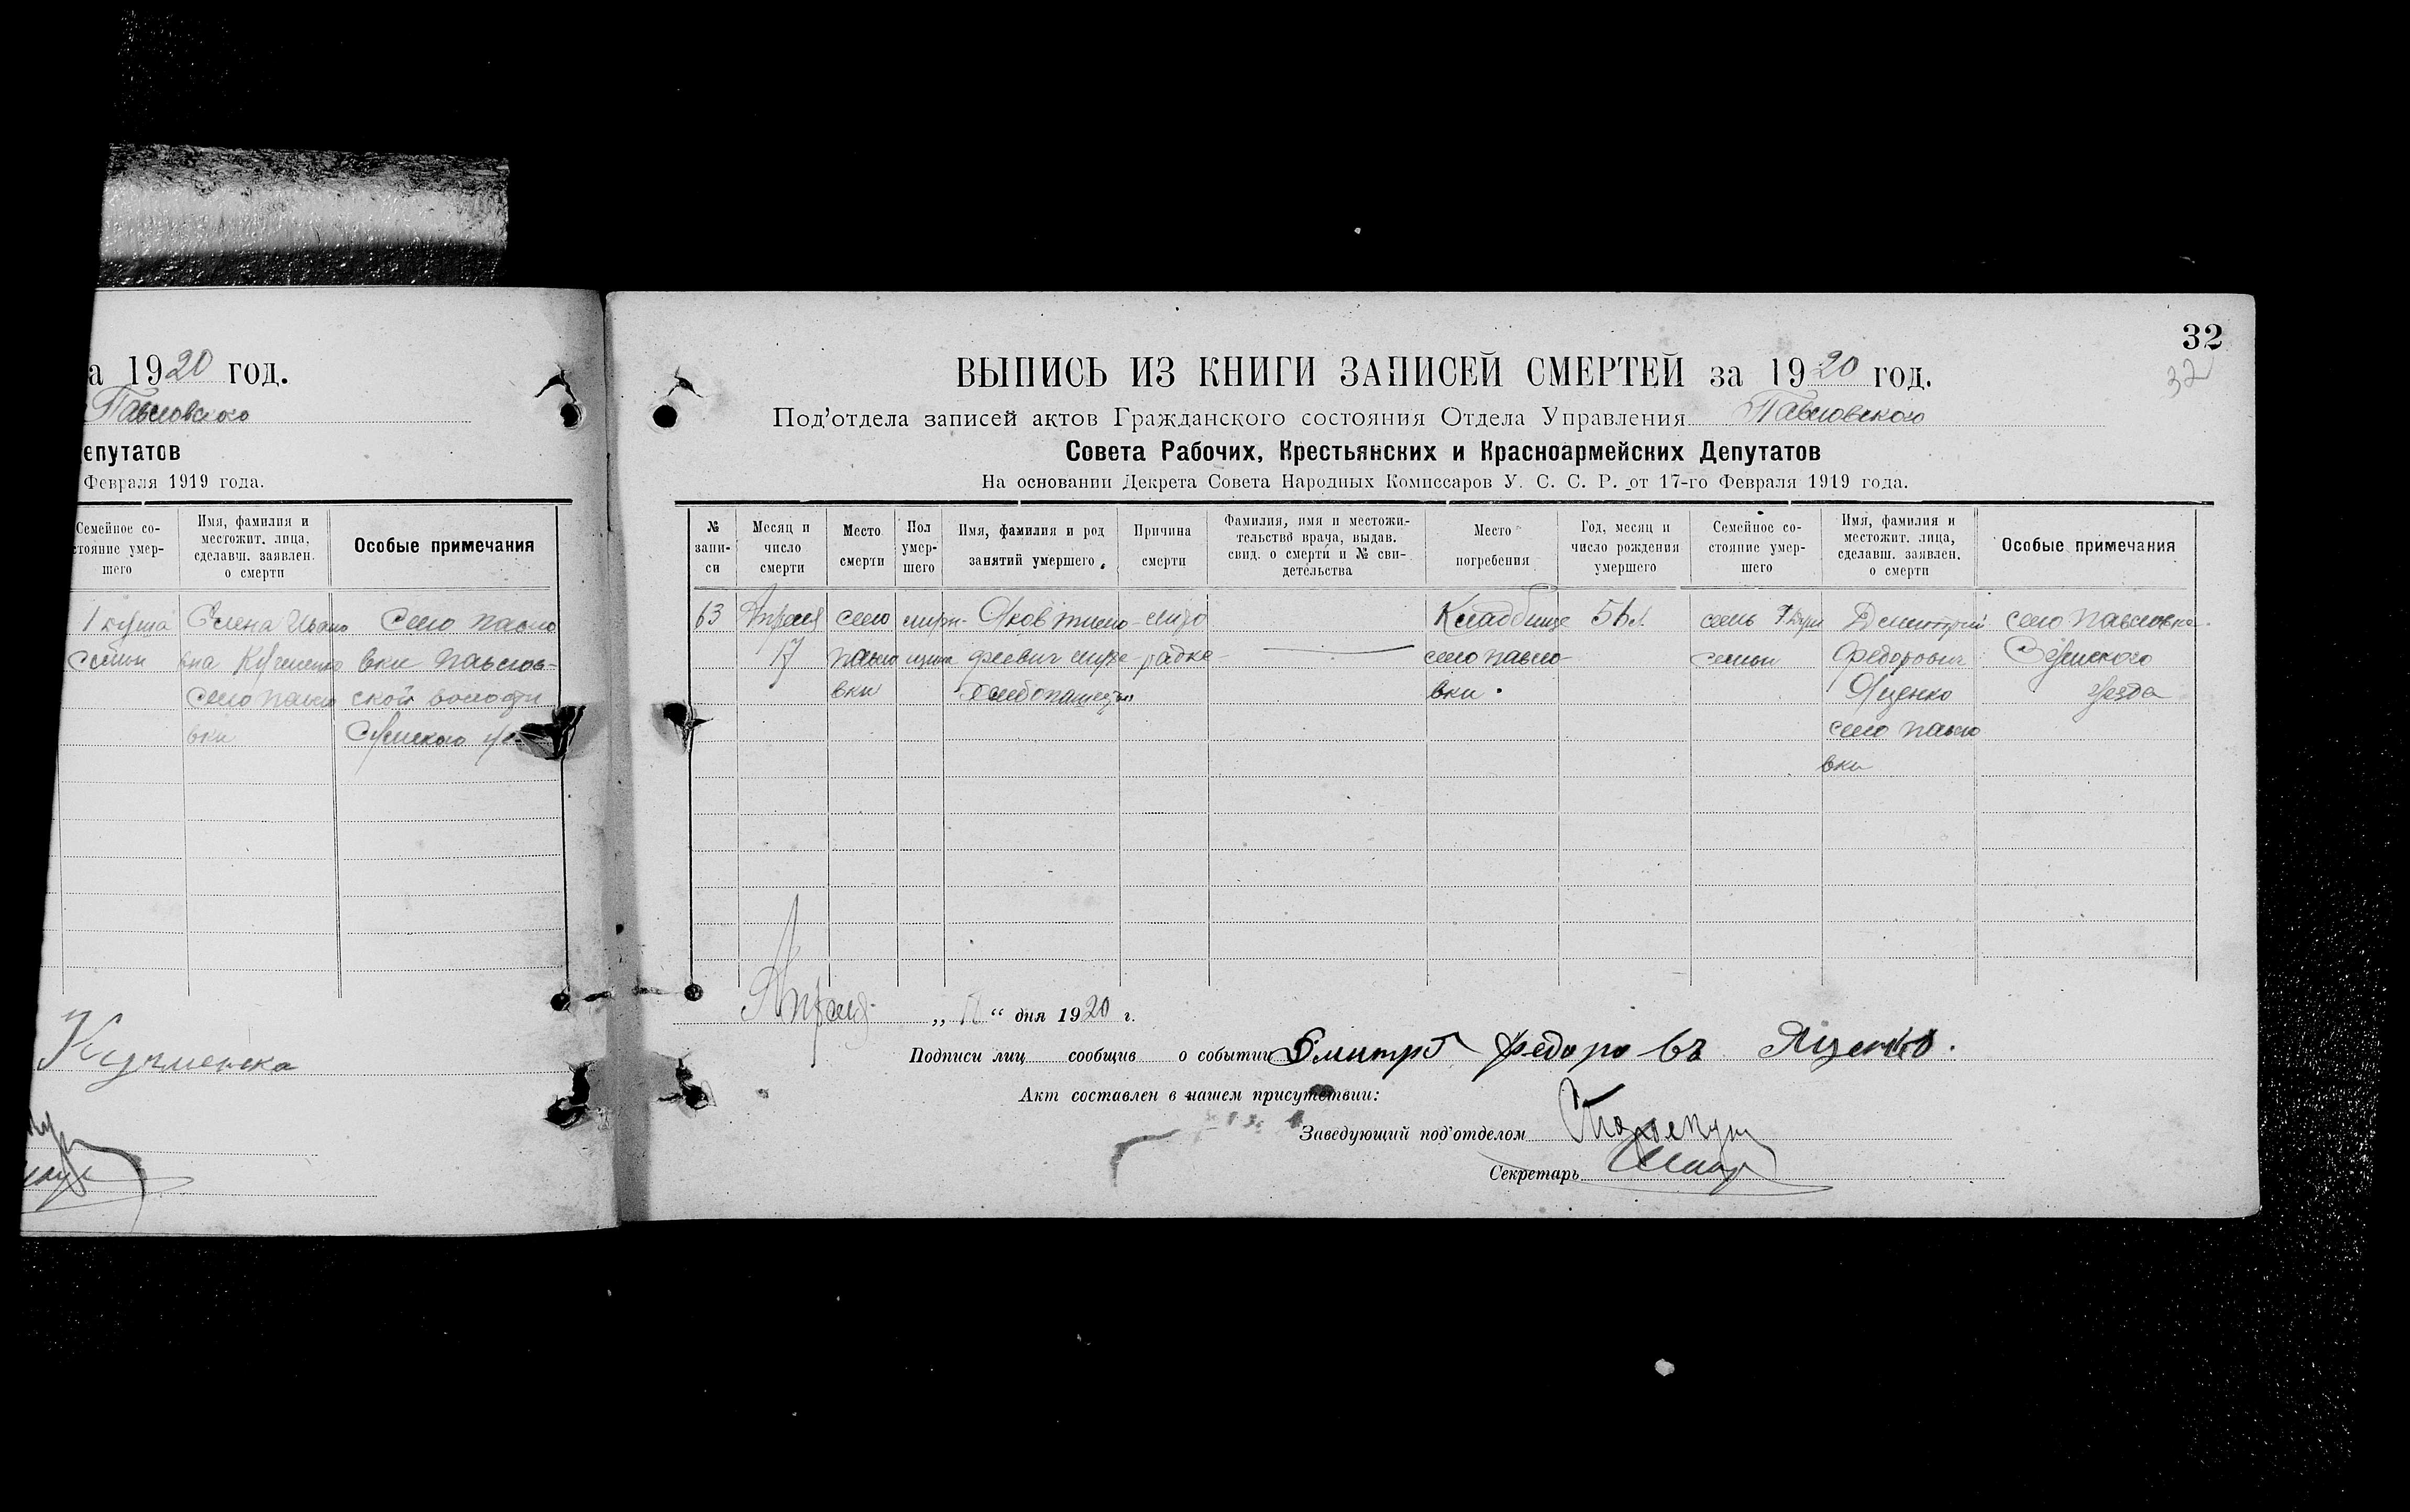 а 1920 год.
Павловского
епутатов
Февраля 1919 года.
Семейное со-
стояние умер-
шего
Имя, фамилия и
местожит. лица,
сделавш. заявлен.
о смерти
Особые примечания
1 Елена Ивано Село павло
семьи вна Кузменко вки павлов-
село павло ской волости
вки Сумского
Кузменка
32
32
ВЫПИСЬ ИЗ КНИГИ ЗАПИСЕЙ СМЕРТЕЙ за 1920 год.
Под'отдела записей актов Гражданского состояния Отдела Управления Павловского
Совета Рабочих, Крестьянских и Красноармейских Депутатов
На основании Декрета Совета Народных Комиссаров У. С. С. Р. от 17-го Февраля 1919 года.
№
запи-
си
Месяц и
число
смерти
Место
смерти
Пол
умер-
шего
Имя, фамилия и род
занятий умершего
Причина
смерти
Фамилия, имя и местожи-
тельство врача, выдав.
свид. о смерти и № сви-
детельства
Место
погребения
Год, месяц и
число рождения
умершего
Семейное со-
стояние умер-
шего
Имя, фамилия и
местожит. лица,
сделавш. заявлен.
о смерти
Особые примечания
63 Апреля село Яков тимо- лихо Кладбище семь Дмитрий село павловка
17 павло щина феевич радка село павло- семьи Федорович Сумского
вки хлебопашец вки Яценко уезда
село павло
вки
Апреля „ “ дня 1920 г.
Подписи лиц сообщив о событии Дмитрй Федоровъ Яценко.
Акт составлен в нашем присутствии:
Заведующий под'отделом
Секретарь